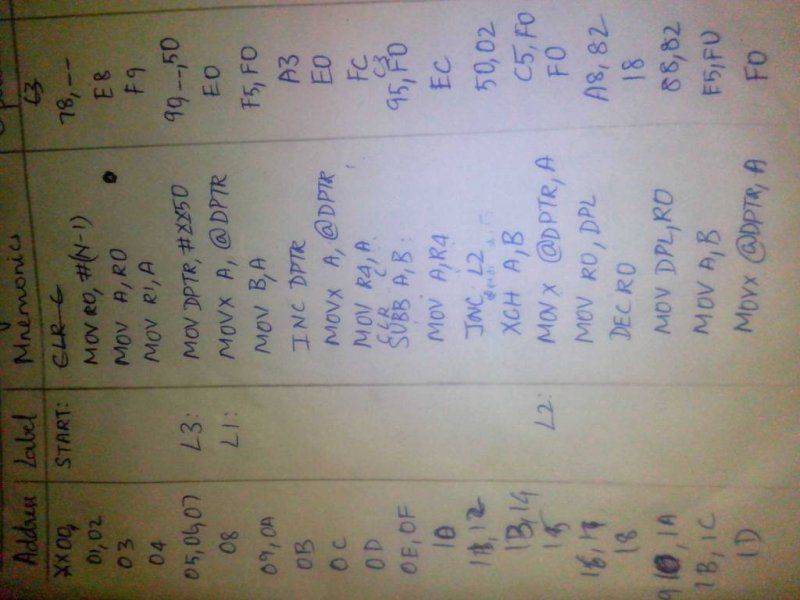 Address Label Mnemonics
XX00, START: CLR C C3
01,02 MOV R0, #(N-1) 78, --
03 MOV A, R0 E8
04 MOV R1, A F9
05,06,07 L3: MOV DPTR, #XX50 90, --, 50
08 L1: MOVX A, @DPTR E0
09, 0A MOV B, A F5, F0
0B INC DPTR A3
0C MOVX A, @DPTR E0
0D MOV R4, A FC
CLR C C3
0E, 0F SUBB A, B 95, F0
10 MOV A, R4 EC
11, 12 JNC L2 50, 02
13, 14 XCH A, B C5, F0
15 L2: MOVX @DPTR, A F0
16, 17 MOV R0, DPL A8, 82
18 DEC R0 18
19, 1A MOV DPL, R0 88, 82
1B, 1C MOV A, B F5, F0
1D MOVX @DPTR, A F0